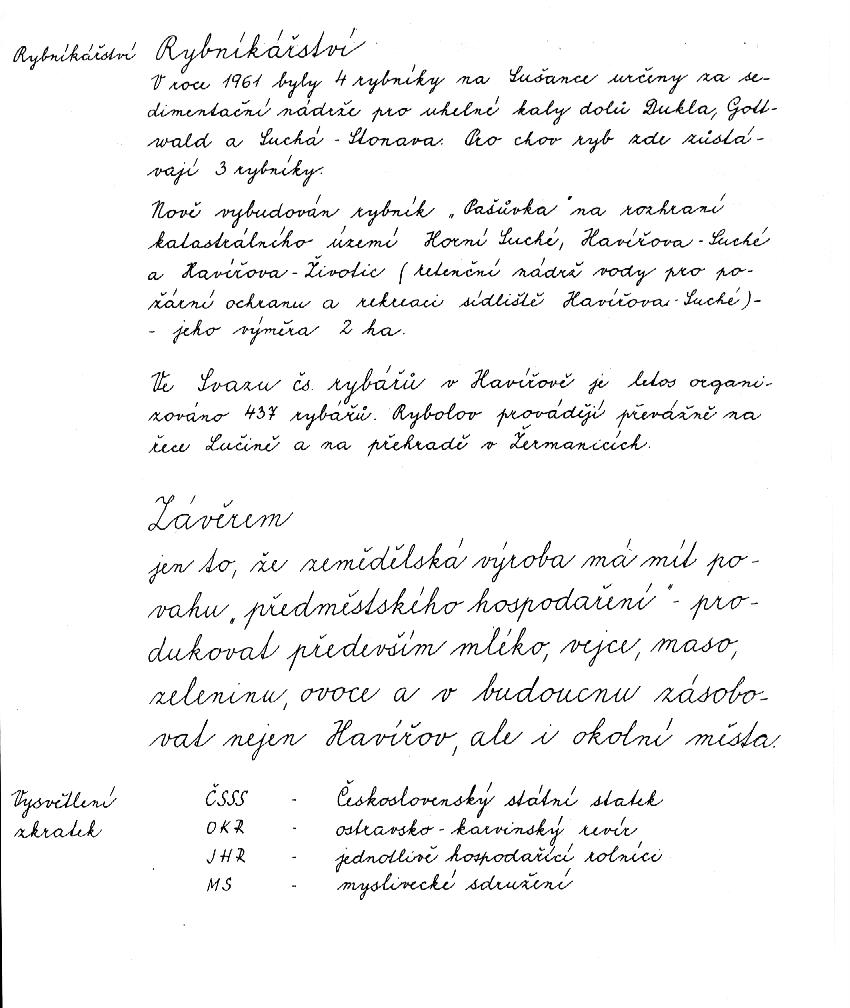 Rybníkářství Rybníkářství
V roce 1961 byly 4 rybníky na Sušance určeny za se-
dimentační nádrže pro uhelné kaly dolů Dukla, Gott-
wald a Suchá - Stonava. Pro chov ryb zde zůstá-
vají 3 rybníky.
Nově vybudován rybník „Pašůvka" na rozhraní
katastrálního území Horní Suché, Havířova-Suché
a Havířova-Životic (retenční nádrž vody pro po-
žární ochranu a rekreaci sídliště Havířova-Suché)-
- jeho výměra 2 ha.
Ve Svazu čs. rybářů v Havířově je letos organi-
zováno 437 rybářů. Rybolov provádějí převážně na
řece Lučině a na přehradě v Žermanicích.
Závěrem
jen to, že zemědělská výroba má mít po-
vahu „předměstského hospodaření" - pro-
dukovat především mléko, vejce, maso,
zeleninu, ovoce a v budoucnu zásobo-
vat nejen Havířov, ale i okolní města.
Vysvětlení ČSSS - Československý státní statek
zkratek OKR - ostravsko-karvinský revír
JHR - jednotlivě hospodařící rolníci
MS - myslivecké sdružení